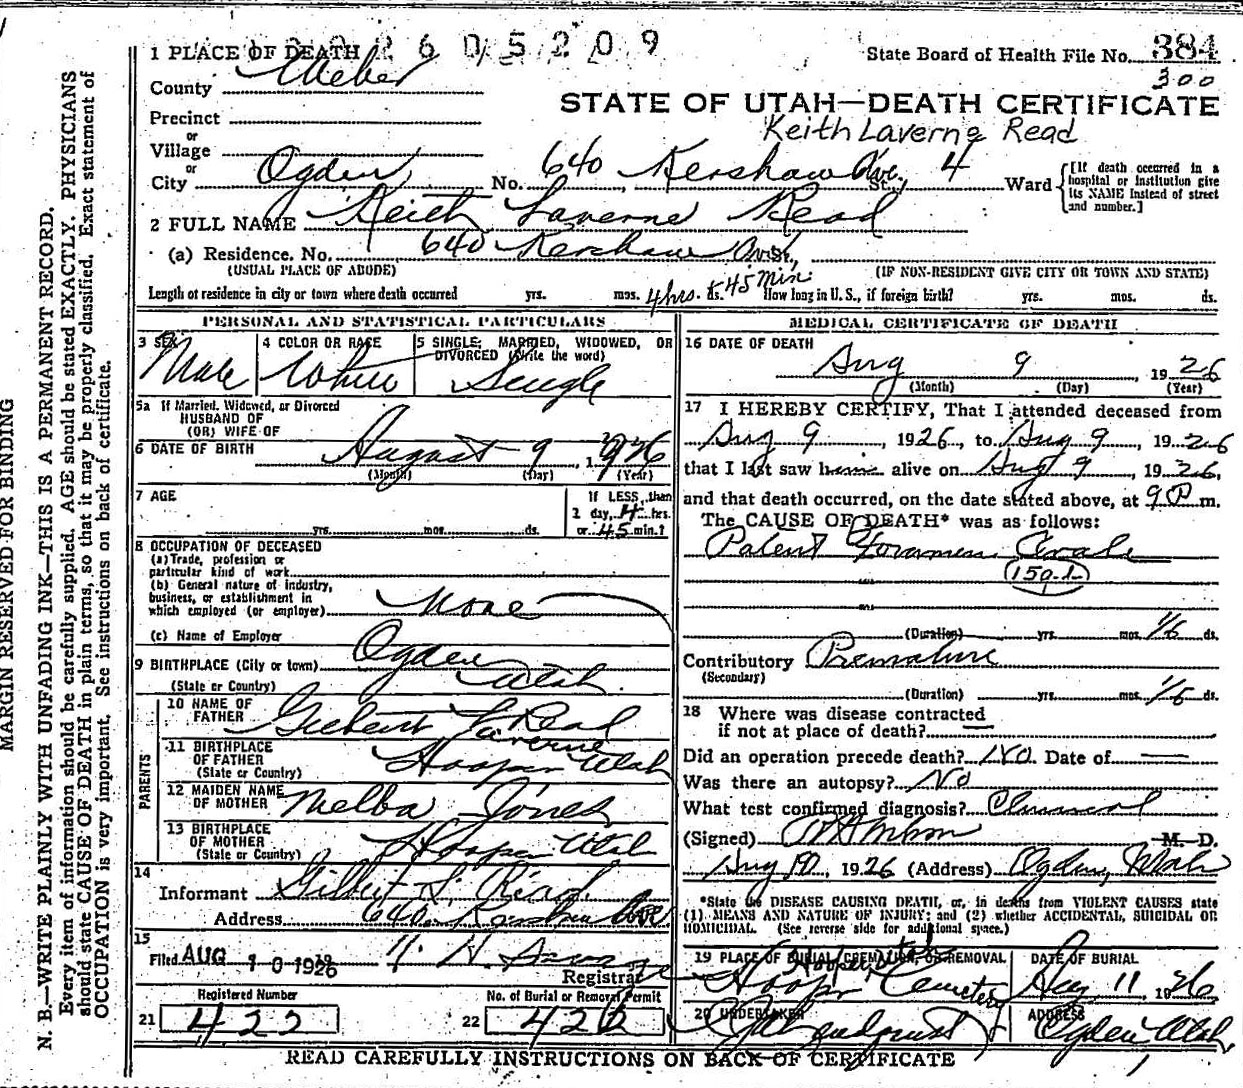 2605209
1 PLACE OF DEATH
State Board of Health File No. 384
300
County Weber
STATE OF UTAH—DEATH CERTIFICATE
Precinct
Keith Laverne Read
or
Village
or
City Ogden No. 640 Kershaw Ave. St., 4 Ward
[If death occurred in a hospital or institution give its NAME instead of street and number.]
2 FULL NAME Keith Laverne Read
(a) Residence. No. 640 Kershaw Ave St.,
(USUAL PLACE OF ABODE) (IF NON-RESIDENT GIVE CITY OR TOWN AND STATE)
Length of residence in city or town where death occurred yrs. mos. 4 hrs. ds. 45 Min How long in U. S., if foreign birth? yrs. mos. ds.
PERSONAL AND STATISTICAL PARTICULARS
3 SEX Male
4 COLOR OR RACE White
5 SINGLE, MARRIED, WIDOWED, OR DIVORCED (Write the word) Single
5a If Married, Widowed, or Divorced
HUSBAND OF
(OR) WIFE OF
6 DATE OF BIRTH August 9, 1926
(Month) (Day) (Year)
7 AGE
yrs. mos. ds.
If LESS than
1 day, 4 hrs.
or 45 min.?
8 OCCUPATION OF DECEASED
(a) Trade, profession or
particular kind of work
(b) General nature of industry,
business, or establishment in
which employed (or employer) None
(c) Name of Employer
9 BIRTHPLACE (City or town) Ogden
(State or Country) Utah
PARENTS
10 NAME OF FATHER Gilbert Laverne Read
11 BIRTHPLACE OF FATHER
(State or Country) Hooper Utah
12 MAIDEN NAME OF MOTHER Melba Jones
13 BIRTHPLACE OF MOTHER
(State or Country) Hooper Utah
14
Informant Gilbert L. Read
Address 640 Kershaw Ave
15
Filed AUG 10 1926 H.
Registrar
Registered Number
21 422
No. of Burial or Removal Permit
22 422
MEDICAL CERTIFICATE OF DEATH
16 DATE OF DEATH
Aug 9, 1926
(Month) (Day) (Year)
17 I HEREBY CERTIFY, That I attended deceased from
Aug 9, 1926, to Aug 9, 1926
that I last saw him alive on Aug 9, 1926,
and that death occurred, on the date stated above, at 9 P m.
The CAUSE OF DEATH* was as follows:
Patent Foramen Ovale
159-1-
(Duration) yrs. mos. 1/6 ds.
Contributory Premature
(Secondary)
(Duration) yrs. mos. 1/6 ds.
18 Where was disease contracted
if not at place of death? —
Did an operation precede death? No. Date of —
Was there an autopsy? No
What test confirmed diagnosis? Clinical
(Signed) M. D.
Aug 10, 1926 (Address) Ogden, Utah
*State the DISEASE CAUSING DEATH, or, in deaths from VIOLENT CAUSES state
(1) MEANS AND NATURE OF INJURY; and (2) whether ACCIDENTAL, SUICIDAL OR
HOMICIDAL. (See reverse side for additional space.)
19 PLACE OF BURIAL, CREMATION, OR REMOVAL
Hooper, Utah
Hooper Cemetery
DATE OF BURIAL
Aug 11 1926
20 UNDERTAKER
ADDRESS
Ogden Utah
READ CAREFULLY INSTRUCTIONS ON BACK OF CERTIFICATE
MARGIN RESERVED FOR BINDING
N. B.—WRITE PLAINLY WITH UNFADING INK—THIS IS A PERMANENT RECORD.
Every item of information should be carefully supplied. AGE should be stated EXACTLY. PHYSICIANS
should state CAUSE OF DEATH in plain terms, so that it may be properly classified. Exact statement of
OCCUPATION is very important. See instructions on back of certificate.